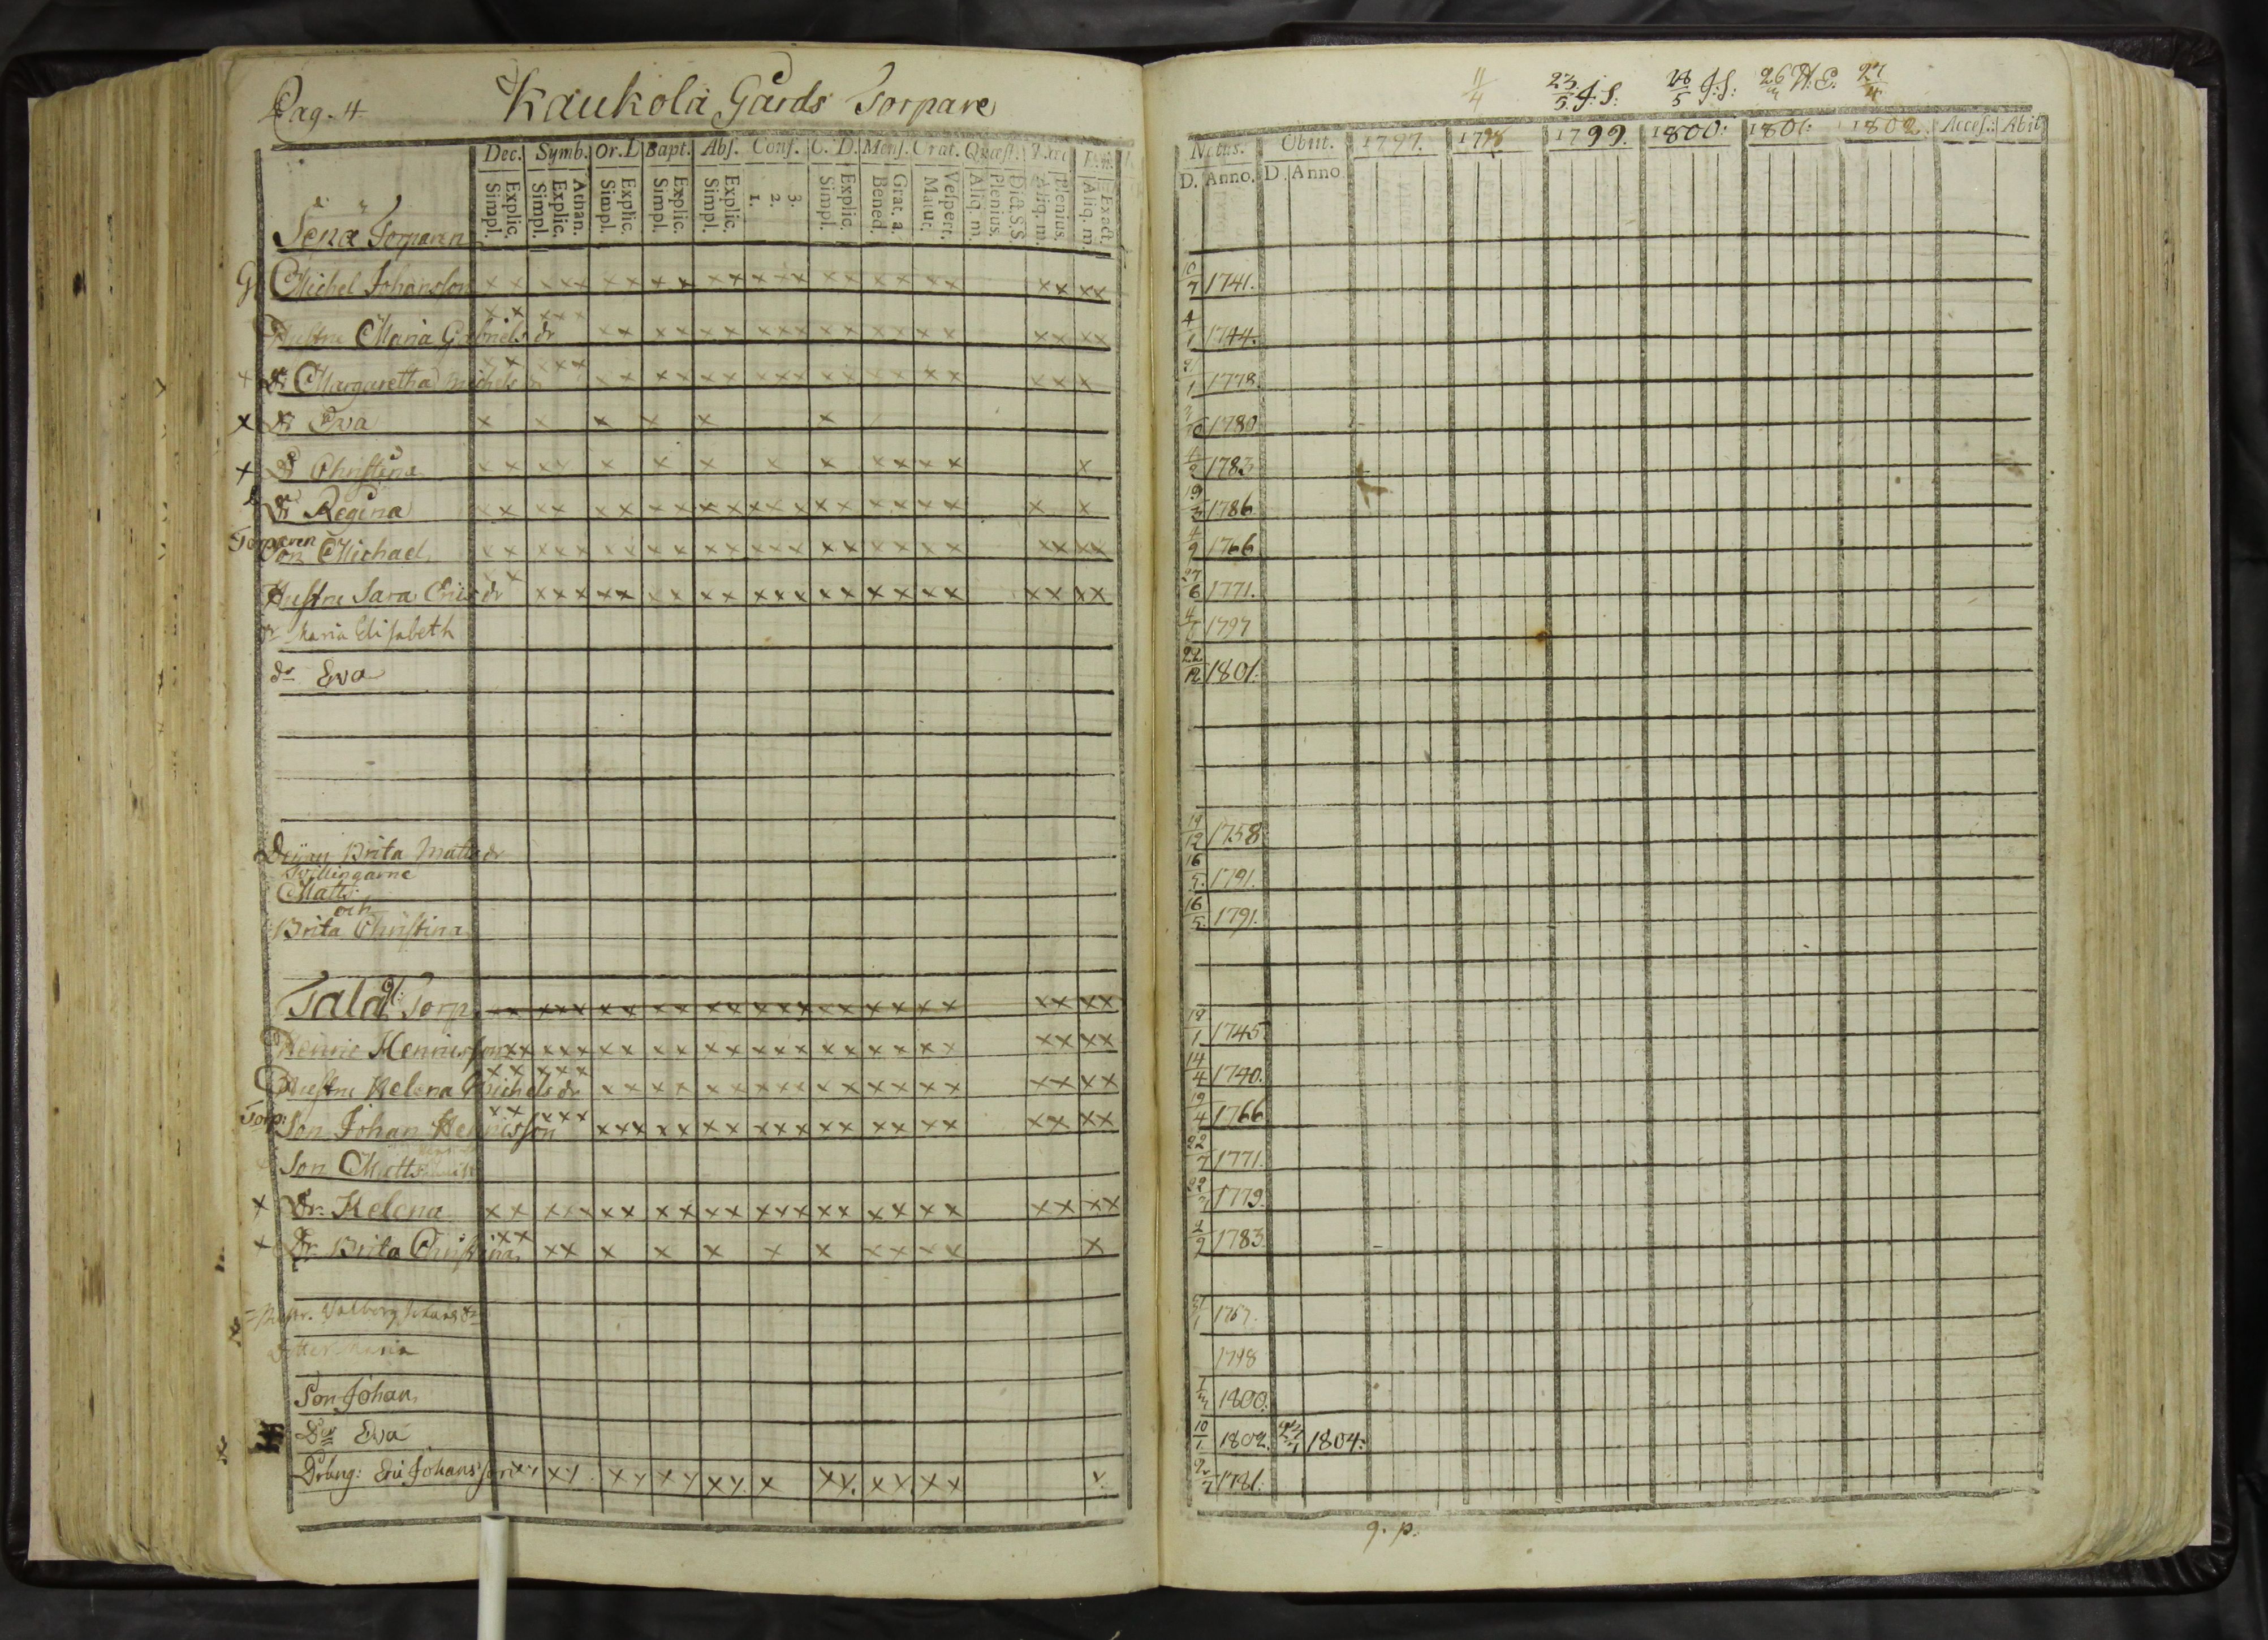 Pag. 4 Kaukola Gårds Torpare
Dec. Symb. Or. D Bapt. Abs. Conf. C. D. Mens. Orat. Quæst.
Explic. Simpl. Athan. Explic. Simpl. Explic. Simpl. Explic. Simpl. Explic. Simpl. 3. 2. 1. Explic. Simpl. Grat. a. Bened. Vespert. Matut. Dict. S.S. Plenius. Aliq. m. Plenius. Aliq. m. Exact. Aliq. m.
Torparen
Michel Johansson x x x x x x x x x x x x x x x x x x x x x x x x
Hustru Maria Gabriels dr
dr Margaretha Michels dr
x dr Eva x x x x x x
x dr Christina
dr Regina
Torparen
Son Michael
Hustru Sara Erics dr
dr Maria Elisabeth
dr Eva
Brita Matts dr
Tvillingarne
Matts
och
Brita Christina
Tala Torp
Henric Henricsson
Hustru Helena Michels dr
Torp: Son Johan Henricsson
Son Matts
x Dr. Helena
x Dr Brita Christina
Hustr. Valborg Johans dr
Dotter Maria
Son Johan
Dr Eva
Dräng: Eric Johansson
11/4 23/5 J.S: 28/5 J:S: 26/3 H:E: 27/4
Natus. Obiit. 1797. 1798 1799. 1800: 1801: 1802. Access: Abit
D. Anno. D. Anno
10/7 1741.
4/1 1744.
21/1 1778.
3/10 1780
4/2 1783
19/3 1786
4/9 1766
27/6 1771.
4/1 1797
22/12 1801.
19/12 1758
16/5. 1791.
16/5. 1791.
18/1 1745
14/4 1740.
19/4 1766
22/7 1771.
22/7 1779.
4/9 1783.
1767.
1798
7/3 1800.
10/1 1802. 23/1 1804.
1781.
g. p.